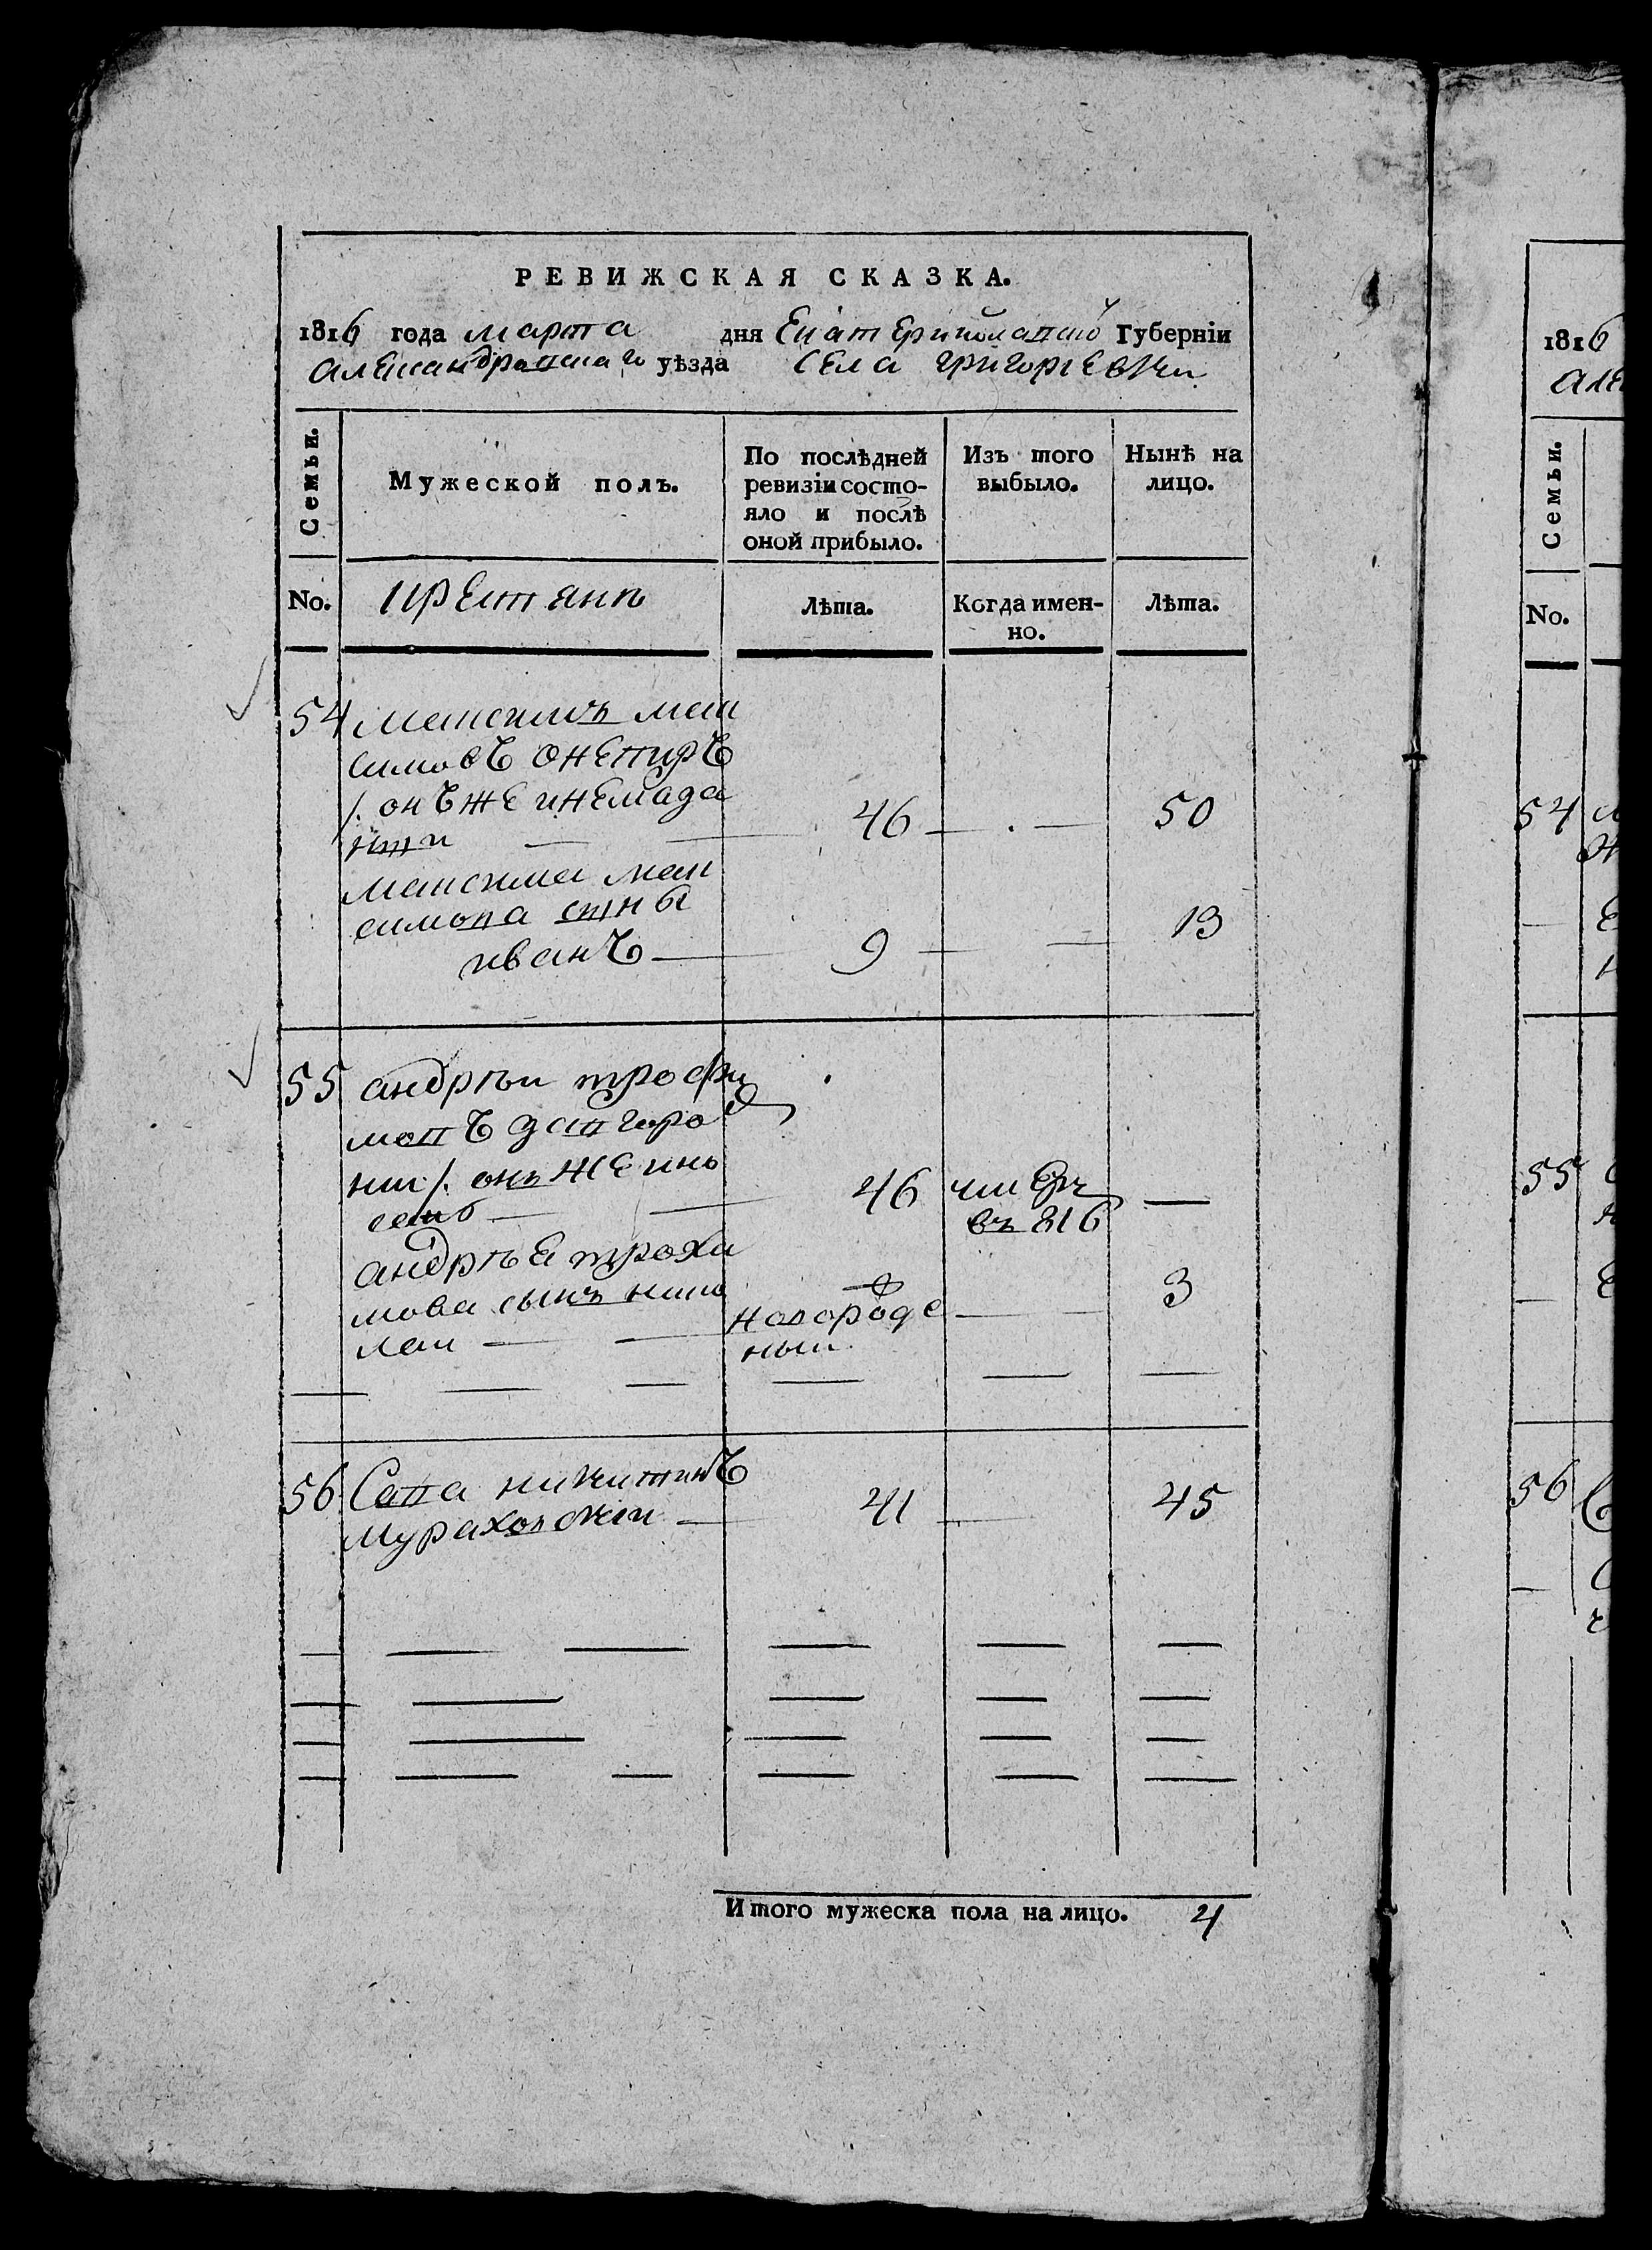 РЕВИЖСКАЯ СКАЗКА.
1816 года марта дня Екатеринославской Губерніи
александровскаго уѣзда села григорьевки
Семьи.
Мужеской полъ.
По послѣдней ревизіи состо-
яло и послѣ
оной прибыло.
Изъ того
выбыло.
Нынѣ на
лицо.
No.
крестянъ
Лѣта.
Когда имен-
но.
Лѣта.
54 максимъ мак
симовъ
/. онъ же
46 50
максима мак
симова сыны
иванъ 9 13
55 андрѣи трофи
мовъ
/. онъ же
46 умеръ —
въ 816
андрѣя трохи
мова сынъ нико
лаи новорожде 3
ныи
56 Сава никитинъ
мураховскіи 41 45
Итого мужеска пола на лицо. 4
1816
але
Семьи.
No.
54
55
56